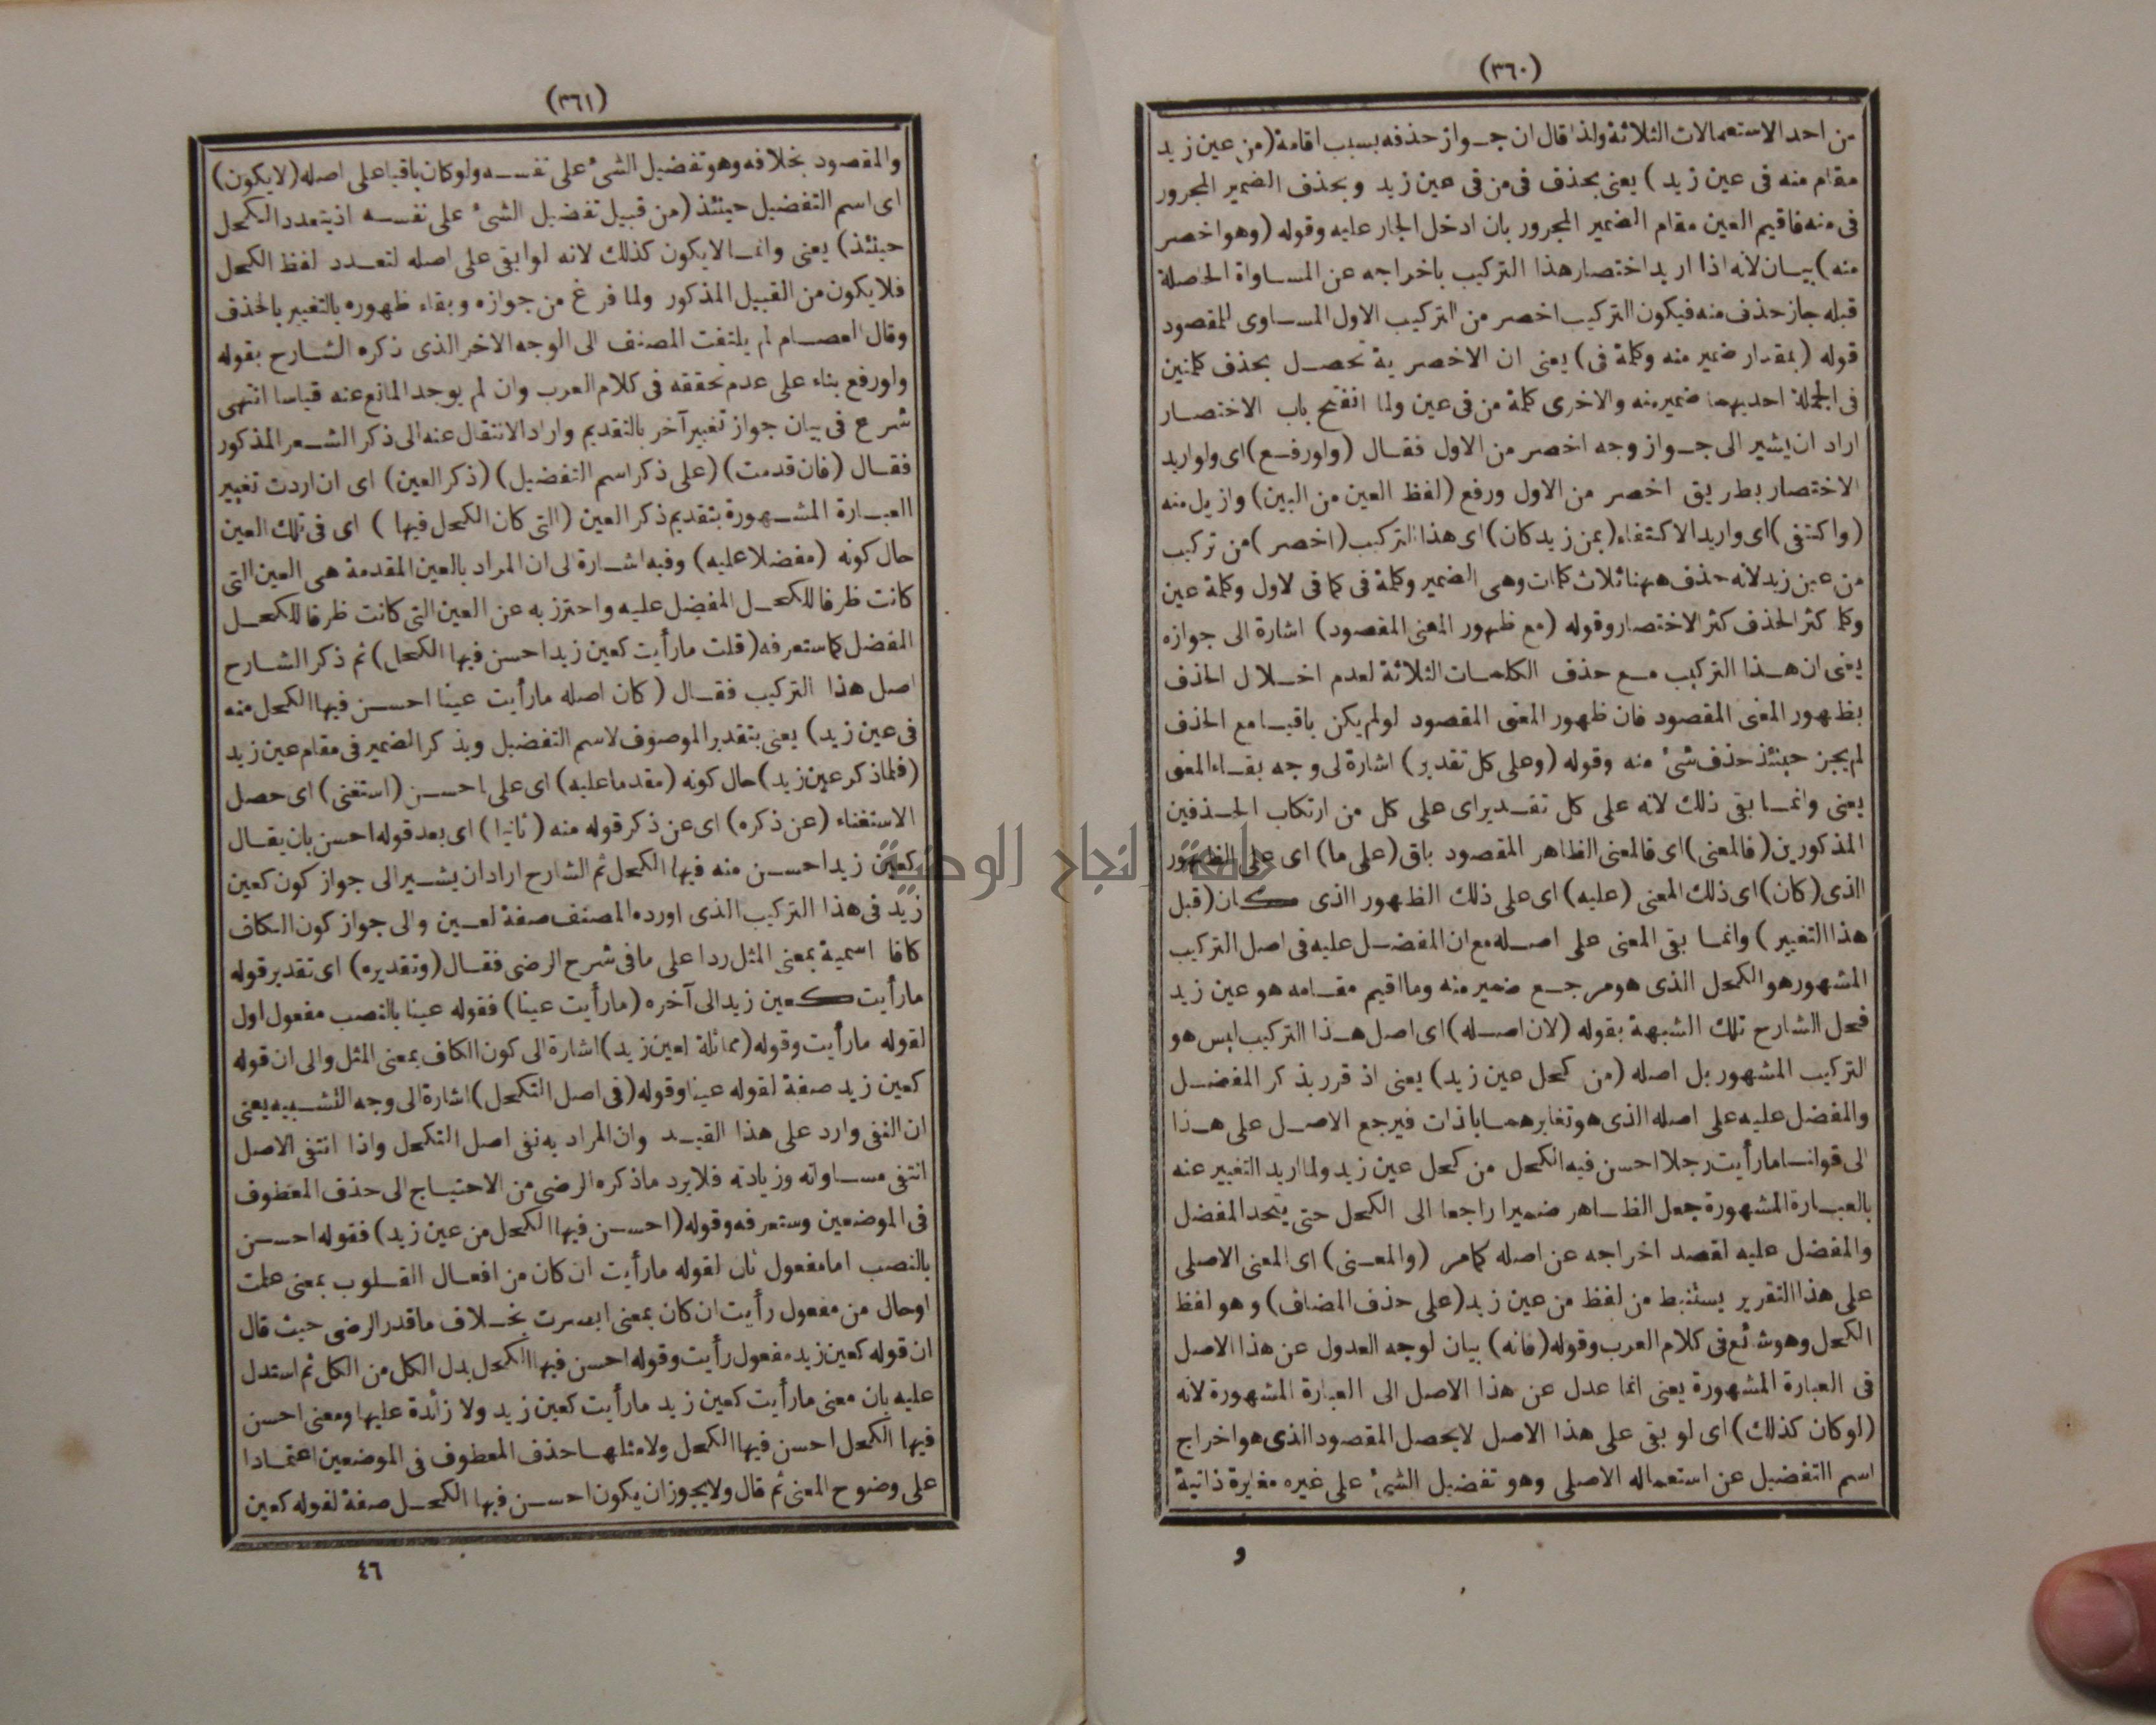 (٣٦٠)
من احد الاستعمالات الثلاثة ولذا قال ان جواز حذفه بسبب اقامة (من عين زيد
مقام منه فى عين زيد) يعنى بحذف فى من فى عين زيد وبحذف الضمير المجرور
فى منه فاقيم العين مقام الضمير المجرور بان ادخل الجار عليه وقوله (وهو اخصر
منه) بيان لانه اذا اريد اختصار هذا التركيب باخراجه عن المساواة الحاصلة
قبله جاز حذف منه فيكون التركيب اخصر من التركيب الاول المساوى للمقصود
قوله (بمقدار ضمير منه وكلمة فى) يعنى ان الاخصرية تحصل بحذف كلمتين
فى الجملة احديهما ضمير منه والاخرى كلمة من فى عين ولما انفتح باب الاختصار
اراد ان يشير الى جواز وجه اخصر من الاول فقال (ولو رفع) اى ولو اريد
الاختصار بطريق اخصر من الاول ورفع (لفظ العين من البين) وازيل منه
(واكتفى) اى واريد الاكتفاء (بمن زيد كان) اى هذا التركيب (اخصر) من تركيب
من عين زيد لانه حذف ههنا ثلاث كلمات وهى الضمير وكلمة فى كما فى الاول وكلمة عين
وكلما كثر الحذف كثر الاختصار وقوله (مع ظهور المعنى المقصود) اشارة الى جوازه
يعنى ان هذا التركيب مع حذف الكلمات الثلاثة لعدم اخلال الحذف
بظهور المعنى المقصود فان ظهور المعنى المقصود لو لم يكن باقيا مع الحذف
لم يجز حينئذ حذف شئ منه وقوله (وعلى كل تقدير) اشارة الى وجه بقاء المعنى
يعنى وانما بقى ذلك لانه على كل تقدير اى على كل من ارتكاب الحذفين
المذكورين (فالمعنى) اى فالمعنى الظاهر المقصود باق (على ما) اى على الظهور
الذى (كان) اى ذلك المعنى (عليه) اى على ذلك الظهور الذى كان (قبل
هذا التغيير) وانما بقى المعنى على اصله مع ان المفضل عليه فى اصل التركيب
المشهور هو الكحل الذى هو مرجع ضمير منه وما اقيم مقامه هو عين زيد
فحل الشارح تلك الشبهة بقوله (لان اصله) اى اصل هذا التركيب ليس هو
التركيب المشهور بل اصله (من كحل عين زيد) يعنى اذ قرر بذكر المفضل
والمفضل عليه على اصله الذى هو تغايرهما بالذات فيرجع الاصل على هذا
الى قولنا ما رأيت رجلا احسن فيه الكحل من كحل عين زيد ولما اريد التغيير عنه
بالعبارة المشهورة جعل الظاهر ضميرا راجعا الى الكحل حتى يتحد المفضل
والمفضل عليه لقصد اخراجه عن اصله كما مر (والمعنى) اى المعنى الاصلى
على هذا التقرير يستنبط من لفظ من عين زيد (على حذف المضاف) وهو لفظ
الكحل وهو شائع فى كلام العرب وقوله (فانه) بيان لوجه العدول عن هذا الاصل
فى العبارة المشهورة يعنى انما عدل عن هذا الاصل الى العبارة المشهورة لانه
(لو كان كذلك) اى لو بقى على هذا الاصل لا يحصل المقصود الذى هو اخراج
اسم التفضيل عن استعماله الاصلى وهو تفضيل الشئ على غيره مغايرة ذاتية
و
(٣٦١)
والمقصود بخلافه وهو تفضيل الشئ على نفسه ولو كان باقيا على اصله (لا يكون)
اى اسم التفضيل حينئذ (من قبيل تفضيل الشئ على نفسه اذ يتعدد الكحل
حينئذ) يعنى وانما لا يكون كذلك لانه لو ابقى على اصله لتعدد لفظ الكحل
فلا يكون من القبيل المذكور ولما فرغ من جوازه وبقاء ظهوره بالتغيير بالحذف
وقال العصام لم يلتفت المصنف الى الوجه الاخر الذى ذكره الشارح بقوله
ولو رفع بناء على عدم تحققه فى كلام العرب وان لم يوجد المانع عنه قياسا انتهى
شرع فى بيان جواز تغيير آخر بالتقديم واراد الانتقال عنه الى ذكر الشعر المذكور
فقال (فان قدمت) (على ذكر اسم التفضيل) (ذكر العين) اى ان اردت تغيير
العبارة المشهورة بتقديم ذكر العين (التى كان الكحل فيها) اى فى تلك العين
حال كونه (مفضلا عليه) وفيه اشارة الى ان المراد بالعين المقدمة هى العين التى
كانت ظرفا للكحل المفضل عليه واحترز به عن العين التى كانت ظرفا للكحل
المفضل كما ستعرفه (قلت ما رأيت كعين زيد احسن فيها الكحل) ثم ذكر الشارح
اصل هذا التركيب فقال (كان اصله ما رأيت عينا احسن فيها الكحل منه
فى عين زيد) يعنى بتقدير الموصوف لاسم التفضيل وبذكر الضمير فى مقام عين زيد
(فلما ذكر عين زيد) حال كونه (مقدما عليه) اى على احسن (استغنى) اى حصل
الاستغناء (عن ذكره) اى عن ذكر قوله منه (ثانيا) اى بعد قوله احسن بان يقال
كعين زيد احسن منه فيها الكحل ثم الشارح اراد ان يشير الى جواز كون كعين
زيد فى هذا التركيب الذى اورده المصنف صفة لعين والى جواز كون الكاف
كافا اسمية بمعنى المثل ردا على ما فى شرح الرضى فقال (وتقديره) اى تقدير قوله
ما رأيت كعين زيد الى آخره (ما رأيت عينا) فقوله عينا بالنصب مفعول اول
لقوله ما رأيت وقوله (مماثلة لعين زيد) اشارة الى كون الكاف بمعنى المثل والى ان قوله
كعين زيد صفة لقوله عينا وقوله (فى اصل التكحل) اشارة الى وجه التشبيه يعنى
ان النفى وارد على هذا القيد وان المراد به نفى اصل التكحل واذا انتفى الاصل
انتفى مساواته وزيادته فلا يرد ما ذكره الرضى من الاحتياج الى حذف المعطوف
فى الموضعين وستعرفه وقوله (احسن فيها الكحل من عين زيد) فقوله احسن
بالنصب اما مفعول ثان لقوله ما رأيت ان كان من افعال القلوب بمعنى علمت
او حال من مفعول رأيت ان كان بمعنى ابصرت بخلاف ما قدر الرضى حيث قال
ان قوله كعين زيد مفعول رأيت وقوله احسن فيها الكحل بدل الكل من الكل ثم استدل
عليه بان معنى ما رأيت كعين زيد ما رأيت كعين زيد ولا زائدة عليها ومعنى احسن
فيها الكحل احسن فيها الكحل ولا مثلها حذف المعطوف فى الموضعين اعتمادا
على وضوح المعنى ثم قال ولا يجوز ان يكون احسن فيها الكحل صفة لقوله كعين
٤٦
جامعة النجاح الوطنية